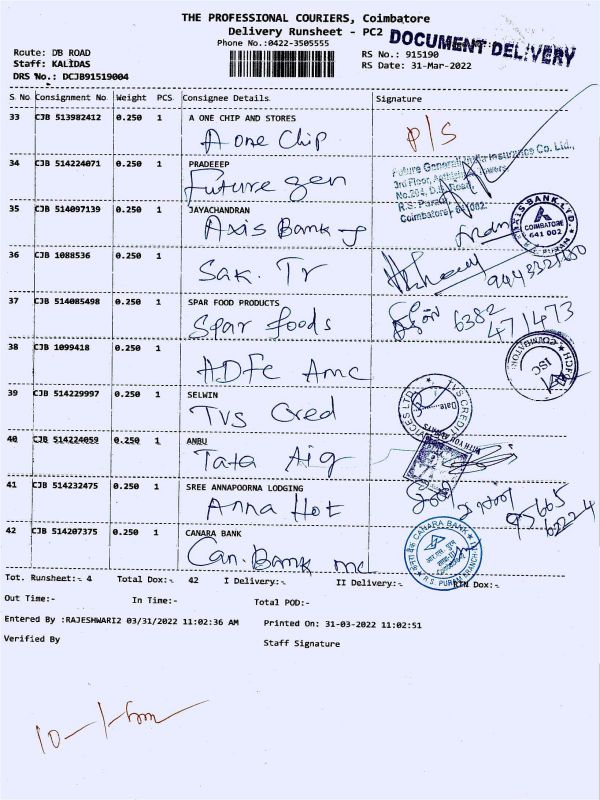 THE PROFESSIONAL COURIERS, Coimbatore
Delivery Runsheet - PC2
DOCUMENT DELIVERY
Phone No.:0422-3505555
Route: DB ROAD
RS No.: 915190
Staff: KALIDAS
RS Date: 31-Mar-2022
DRS No.: DCJB91519004
S No Consignment No Weight PCS Consignee Details Signature
33 CJB 513982412 0.250 1 A ONE CHIP AND STORES
A one Chip P/S
34 CJB 514224071 0.250 1 PRADEEEP
Future gen
Future Generali India Insurance Co. Ltd.,
3rd Floor,
No.204, D.B. Road,
R.S. Puram
Coimbatore - 641002.
35 CJB 514097139 0.250 1 JAYACHANDRAN
Axis Bank
AXIS BANK LTD.
COIMBATORE
641 002
R.S. PURAM
36 CJB 1088536 0.250 1
Sak. Tr
37 CJB 514085498 0.250 1 SPAR FOOD PRODUCTS
Spar foods 6382
471473
38 CJB 1099418 0.250 1
HDFC Amc
ISC
39 CJB 514229997 0.250 1 SELWIN
TVS Cred
TVS CREDIT SERVICES LTD.
Date
40 CJB 514224059 0.250 1 ANBU
Tata Aig
41 CJB 514232475 0.250 1 SREE ANNAPOORNA LODGING
Anna Hot 95665
62224
42 CJB 514207375 0.250 1 CANARA BANK
Can. Bank
CANARA BANK
R.S. PURAM BRANCH
Tot. Runsheet:- 4 Total Dox:- 42 I Delivery:- II Delivery:- RTN Dox:-
Out Time:- In Time:- Total POD:-
Entered By :RAJESHWARI2 03/31/2022 11:02:36 AM Printed On: 31-03-2022 11:02:51
Verified By Staff Signature